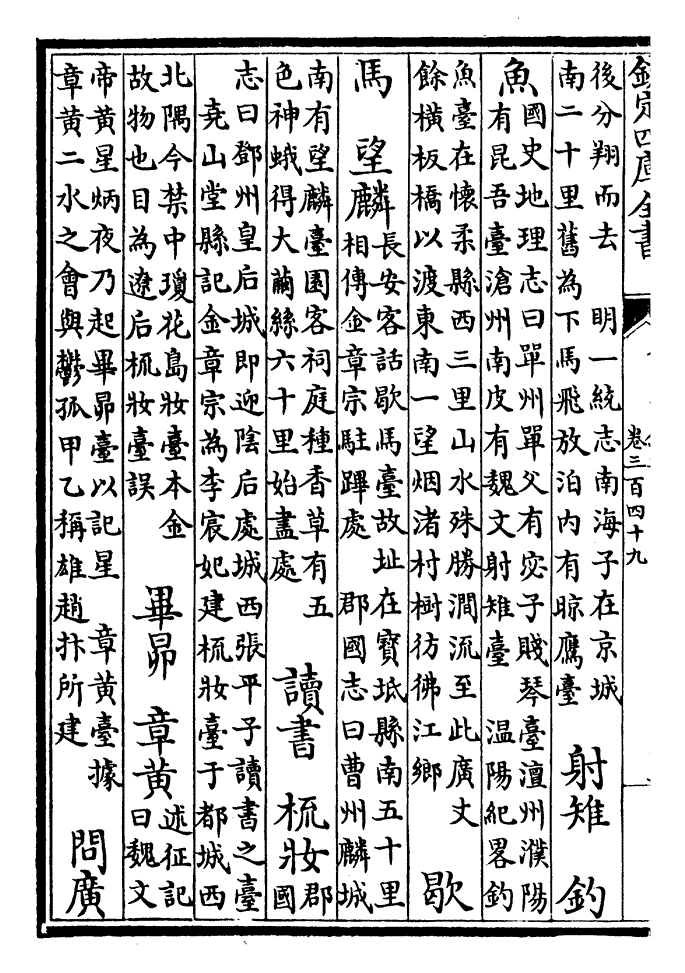 欽定四庫全書
卷三百四十九
後分翔而去　明一統志南海子在京城
南二十里舊為下馬飛放泊内有晾鷹臺
射雉　釣
魚
國史地理志曰單州單父有宓子賤琴臺澶州濮陽
有昆吾臺滄州南皮有魏文射雉臺　温陽紀畧釣
魚臺在懷柔縣西三里山水殊勝澗流至此廣丈
餘橫板橋以渡東南一望烟渚村樹彷彿江鄉
歇
馬　望麟
長安客話歇馬臺故址在寶坻縣南五十里
相傳金章宗駐蹕處　郡國志曰曹州麟城
南有望麟臺園客祠庭種香草有五
色神蛾得大繭絲六十里始盡處
讀書　梳妝
郡
國
志曰鄧州皇后城即迎陰后處城西張平子讀書之臺
堯山堂縣記金章宗為李宸妃建梳妝臺于都城西
北隅今禁中瓊花島妝臺本金
故物也目為遼后梳妝臺誤
畢昴　章黄
述征記
曰魏文
帝黄星炳夜乃起畢昴臺以記星　章黄臺據
章黄二水之會與鬱孤甲乙稱雄趙抃所建
問廣